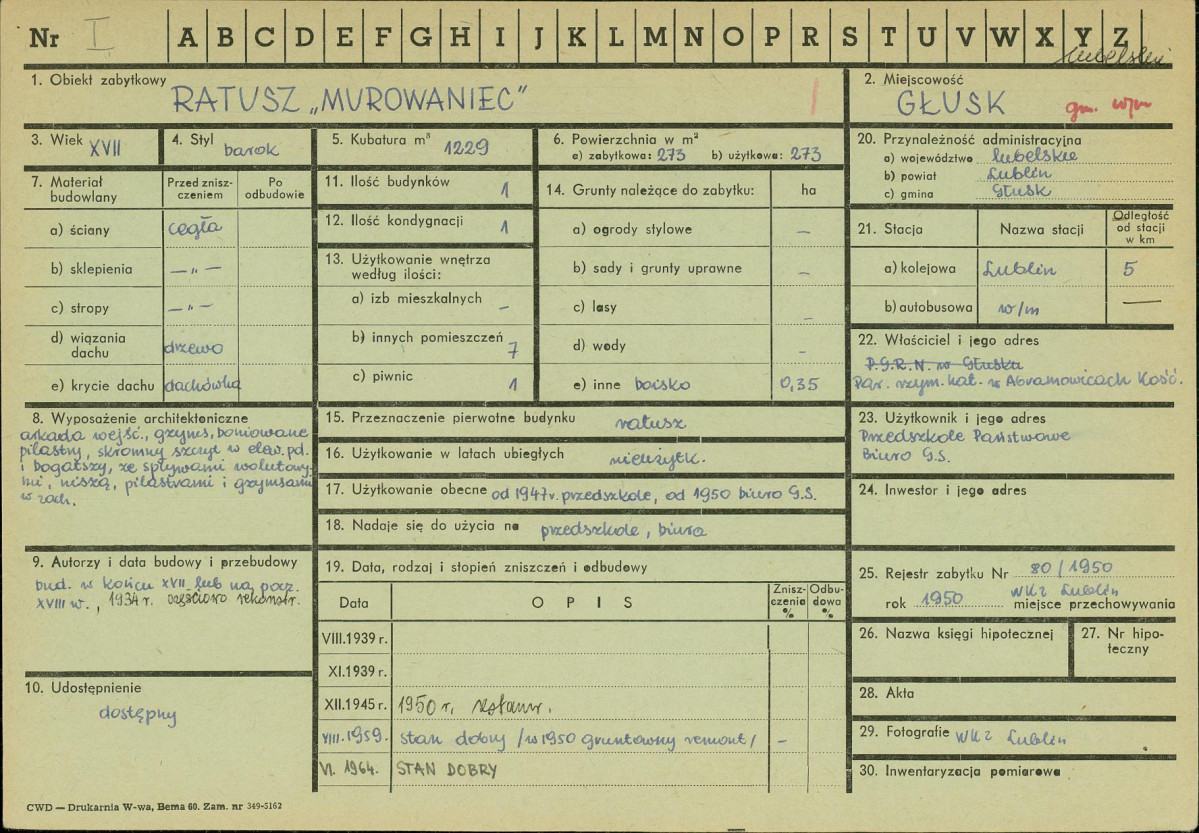 Nr I A B C D E F G H I J K L M N O P R S T U V W X Y Z
lubelski
1. Obiekt zabytkowy
RATUSZ „MUROWANIEC"
2. Miejscowość
GŁUSK gm.
3. Wiek XVII
4. Styl barok
5. Kubatura m³ 1229
6. Powierzchnia w m²
a) zabytkowa: 273 b) użytkowa: 273
7. Materiał budowlany
Przed zniszczeniem
Po odbudowie
a) ściany cegła
b) sklepienia —„—
c) stropy —„—
d) wiązania dachu drzewo
e) krycie dachu dachówka
11. Ilość budynków 1
12. Ilość kondygnacji 1
13. Użytkowanie wnętrza
według ilości:
a) izb mieszkalnych –
b) innych pomieszczeń 7
c) piwnic 1
14. Grunty należące do zabytku: ha
a) ogrody stylowe –
b) sady i grunty uprawne –
c) lasy –
d) wody –
e) inne boisko 0,35
20. Przynależność administracyjna
a) województwo lubelskie
b) powiat Lublin
c) gmina Głusk
21. Stacja Nazwa stacji
Odległość
od stacji
w km
a) kolejowa Lublin 5
b) autobusowa w/m —
22. Właściciel i jego adres
P.G.R.N. w Głusku
Par. rzym. kat. w Abramowicach Kość.
8. Wyposażenie architektoniczne
arkada wejść., gzyms, boniowane
pilastry, skromny szczyt w elew. pd.
i bogatszy, ze spływami wolutowy-
mi, niszą, pilastrami i gzymsami
w zach.
15. Przeznaczenie pierwotne budynku ratusz
16. Użytkowanie w latach ubiegłych nieużytk.
17. Użytkowanie obecne od 1947r. przedszkole, od 1950 biuro G.S.
18. Nadaje się do użycia na przedszkole, biura
23. Użytkownik i jego adres
Przedszkole Państwowe
Biuro G.S.
24. Inwestor i jego adres
9. Autorzy i data budowy i przebudowy
bud. w końcu XVII lub na pocz.
XVIII w., 1934 r. częściowo rekonstr.
10. Udostępnienie
dostępny
19. Data, rodzaj i stopień zniszczeń i odbudowy
Data O P I S
Znisz-
czenia
%
Odbu-
dowa
%
VIII.1939 r.
XI.1939 r.
XII.1945 r. 1950 r.
VIII.1959. stan dobry /w 1950 gruntowny remont/ –
VI. 1964. STAN DOBRY
25. Rejestr zabytku Nr 80/1950
WKZ Lublin
rok 1950 miejsce przechowywania
26. Nazwa księgi hipotecznej
27. Nr hipo-
teczny
28. Akta
29. Fotografie WKZ Lublin
30. Inwentaryzacja pomiarowa
CWD — Drukarnia W-wa, Bema 60. Zam. nr 349-5162